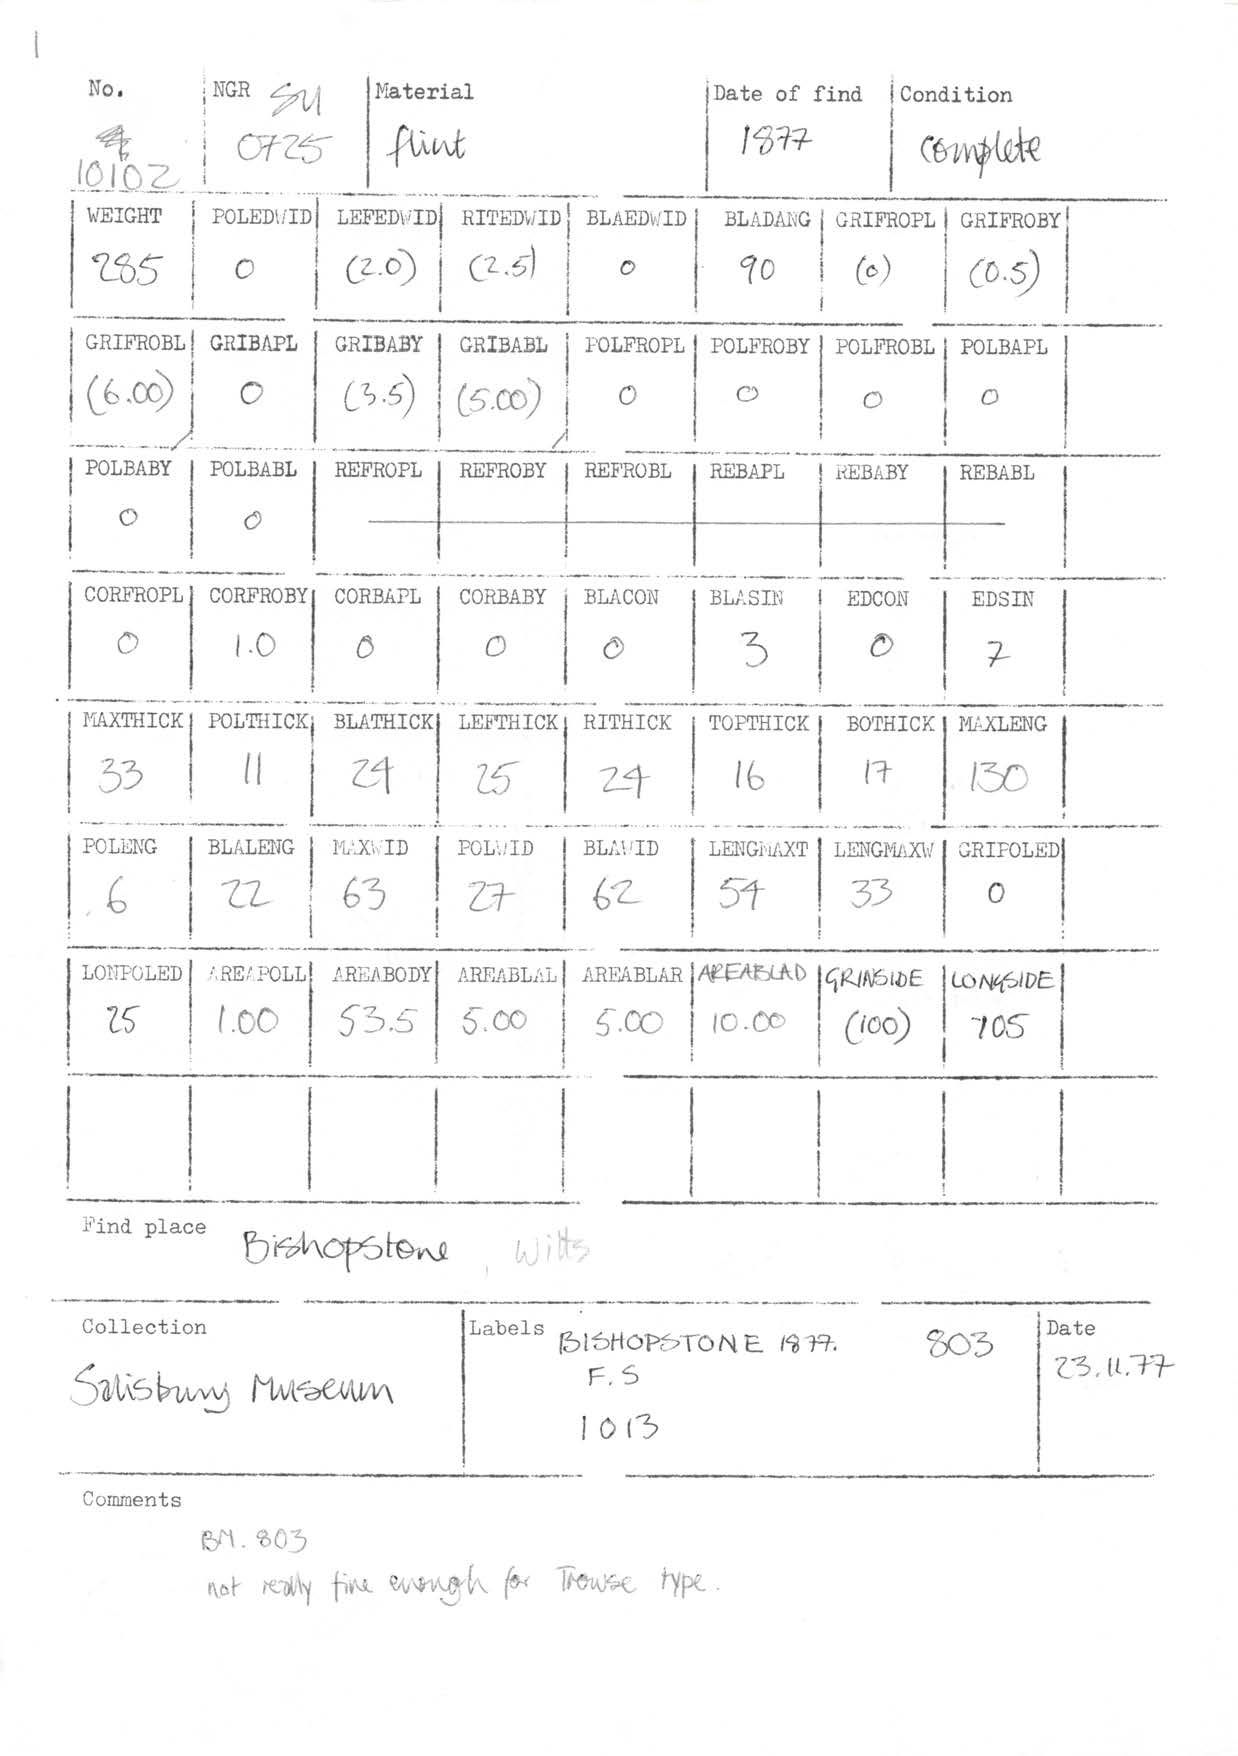 1
No. NGR SU Material Date of find Condition
10102 0725 flint 1877 complete
WEIGHT POLEDWID LEFEDWID RITEDWID BLAEDWID BLADANG GRIFROPL GRIFROBY
285 0 (2.0) (2.5) 0 90 (0) (0.5)
GRIFROBL GRIBAPL GRIBABY GRIBABL POLFROPL POLFROBY POLFROBL POLBAPL
(6.00) 0 (3.5) (5.00) 0 0 0 0
POLBABY POLBABL REFROPL REFROBY REFROBL REBAPL REBABY REBABL
0 0
CORFROPL CORFROBY CORBAPL CORBABY BLACON BLASIN EDCON EDSIN
0 1.0 0 0 0 3 0 7
MAXTHICK POLTHICK BLATHICK LEFTHICK RITHICK TOPTHICK BOTHICK MAXLENG
33 11 24 25 24 16 17 130
POLENG BLALENG MAXWID POLWID BLAWID LENGMAXT LENGMAXW GRIPOLED
6 22 63 27 62 54 33 0
LONPOLED AREAPOLL AREABODY AREABLAL AREABLAR AREABLAD GRINSIDE LONGSIDE
25 1.00 53.5 5.00 5.00 10.00 (100) 705
Find place Bishopstone, Wilts
Collection Labels BISHOPSTONE 1877. 803 Date
Salisbury Museum F.S 23.11.77
1013
Comments
BM. 803
not really fine enough for Trowse type.